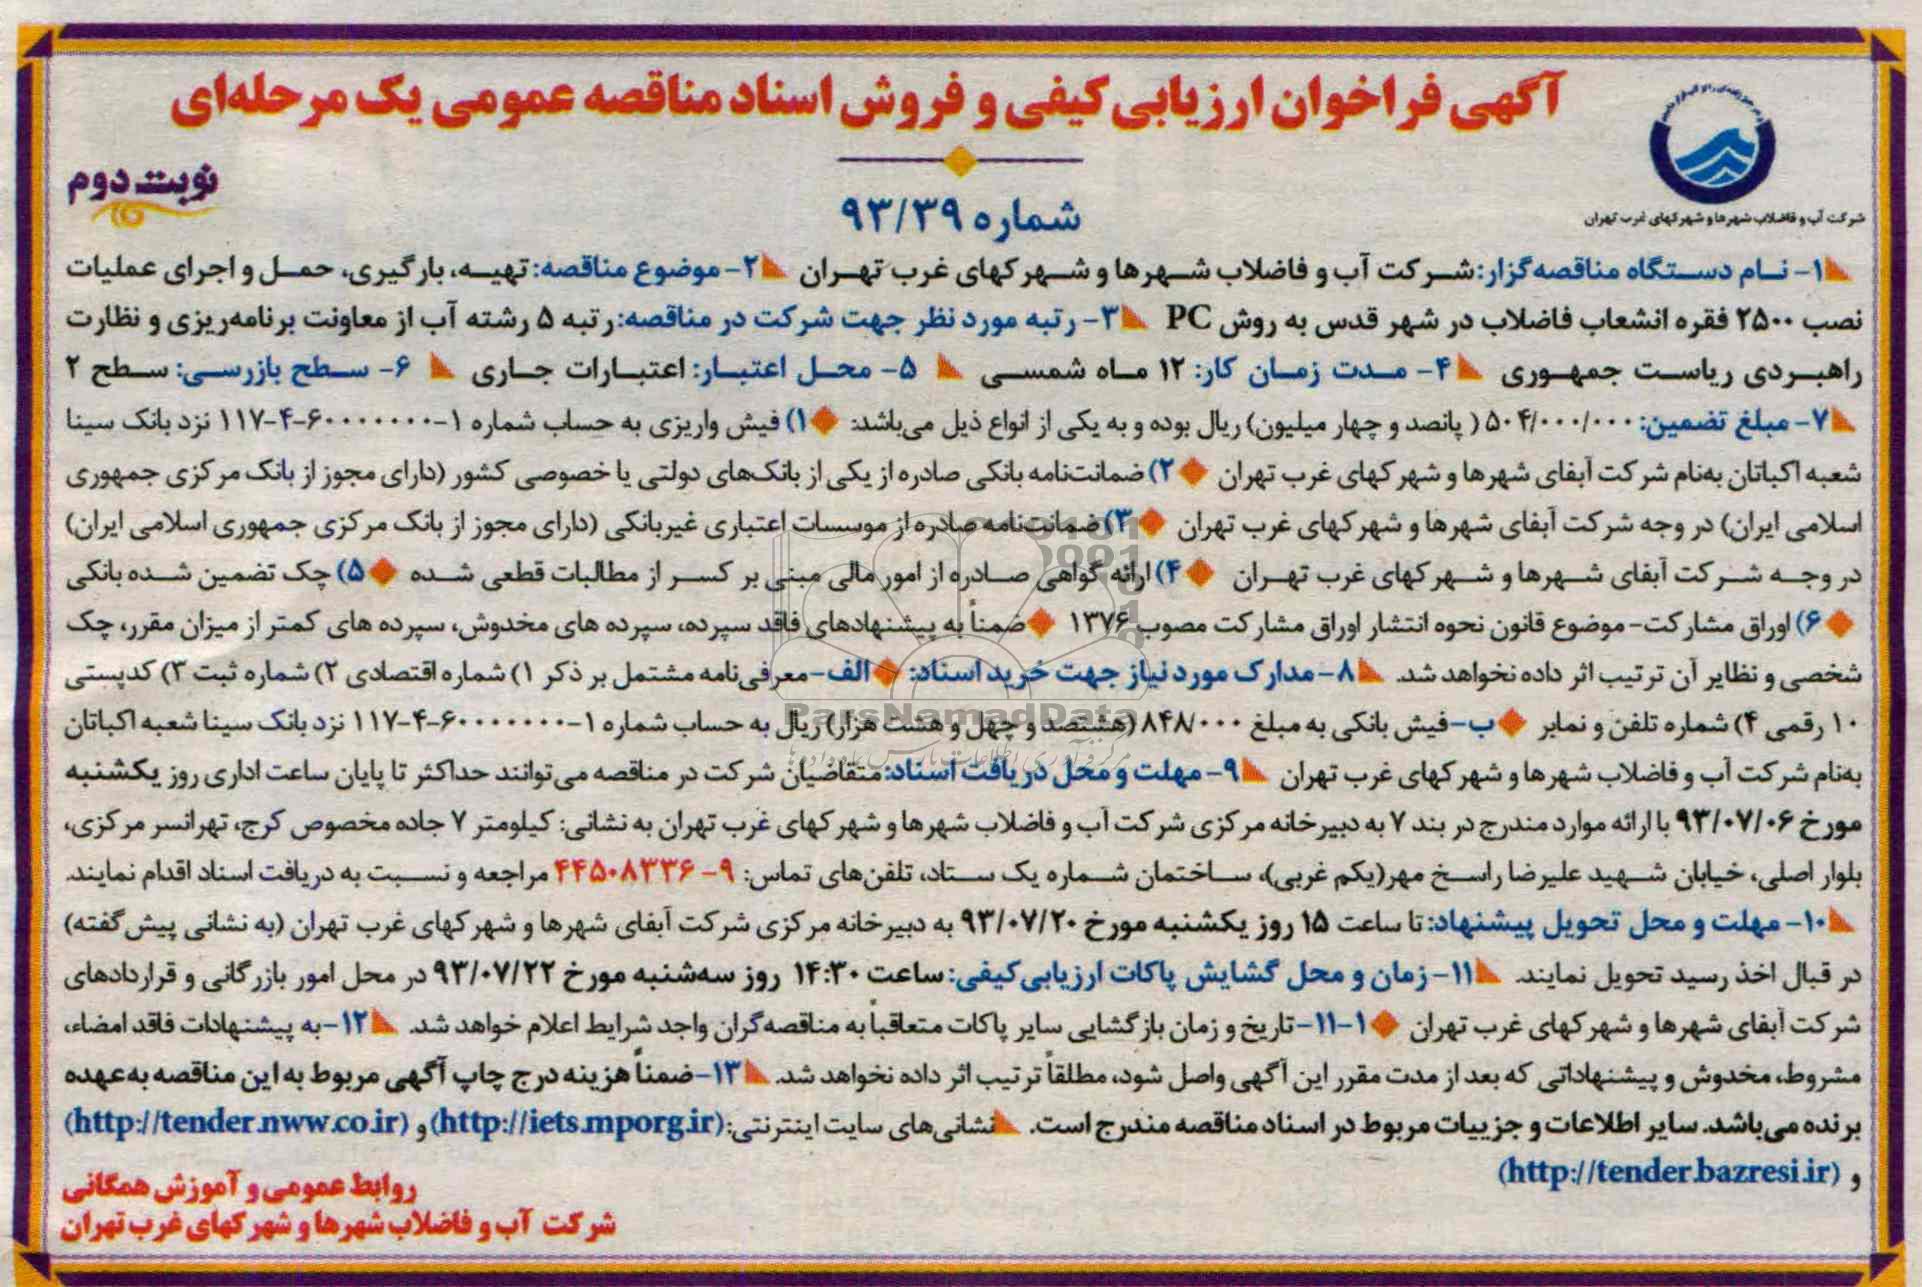 آگهی فراخوان ارزیابی کیفی و فروش اسناد مناقصه عمومی یک مرحله‌ای
نوبت دوم
شرکت آب و فاضلاب شهرها و شهرکهای غرب تهران
شماره ۹۳/۳۹
۱- نام دستگاه مناقصه‌گزار: شرکت آب و فاضلاب شهرها و شهرکهای غرب تهران ۲- موضوع مناقصه: تهیه، بارگیری، حمل و اجرای عملیات
نصب ۲۵۰۰ فقره انشعاب فاضلاب در شهر قدس به روش PC ۳- رتبه مورد نظر جهت شرکت در مناقصه: رتبه ۵ رشته آب از معاونت برنامه‌ریزی و نظارت
راهبردی ریاست جمهوری ۴- مدت زمان کار: ۱۲ ماه شمسی ۵- محل اعتبار: اعتبارات جاری ۶- سطح بازرسی: سطح ۲
۷- مبلغ تضمین: ۵۰۴/۰۰۰/۰۰۰ ( پانصد و چهار میلیون) ریال بوده و به یکی از انواع ذیل می‌باشد: ۱) فیش واریزی به حساب شماره ۱-۶۰۰۰۰۰۰۰-۴-۱۱۷ نزد بانک سینا
شعبه اکباتان به‌نام شرکت آبفای شهرها و شهرکهای غرب تهران ۲) ضمانت‌نامه بانکی صادره از یکی از بانک‌های دولتی یا خصوصی کشور (دارای مجوز از بانک مرکزی جمهوری
اسلامی ایران) در وجه شرکت آبفای شهرها و شهرکهای غرب تهران ۳) ضمانت‌نامه صادره از موسسات اعتباری غیربانکی (دارای مجوز از بانک مرکزی جمهوری اسلامی ایران)
در وجه شرکت آبفای شهرها و شهرکهای غرب تهران ۴) ارائه گواهی صادره از امور مالی مبنی بر کسر از مطالبات قطعی شده ۵) چک تضمین شده بانکی
۶) اوراق مشارکت- موضوع قانون نحوه انتشار اوراق مشارکت مصوب ۱۳۷۶ ضمناً به پیشنهادهای فاقد سپرده، سپرده های مخدوش، سپرده های کمتر از میزان مقرر، چک
شخصی و نظایر آن ترتیب اثر داده نخواهد شد. ۸- مدارک مورد نیاز جهت خرید اسناد: الف- معرفی‌نامه مشتمل بر ذکر ۱) شماره اقتصادی ۲) شماره ثبت ۳) کدپستی
۱۰ رقمی ۴) شماره تلفن و نمابر ب- فیش بانکی به مبلغ ۸۴۸/۰۰۰ (هشتصد و چهل و هشت هزار) ریال به حساب شماره ۱-۶۰۰۰۰۰۰۰-۴-۱۱۷ نزد بانک سینا شعبه اکباتان
به‌نام شرکت آب و فاضلاب شهرها و شهرکهای غرب تهران ۹- مهلت و محل دریافت اسناد: متقاضیان شرکت در مناقصه می‌توانند حداکثر تا پایان ساعت اداری روز یکشنبه
مورخ ۹۳/۰۷/۰۶ با ارائه موارد مندرج در بند ۷ به دبیرخانه مرکزی شرکت آب و فاضلاب شهرها و شهرکهای غرب تهران به نشانی: کیلومتر ۷ جاده مخصوص کرج، تهرانسر مرکزی،
بلوار اصلی، خیابان شهید علیرضا راسخ مهر(یکم غربی)، ساختمان شماره یک ستاد، تلفن‌های تماس: ۹-۴۴۵۰۸۳۳۶ مراجعه و نسبت به دریافت اسناد اقدام نمایند.
۱۰- مهلت و محل تحویل پیشنهاد: تا ساعت ۱۵ روز یکشنبه مورخ ۹۳/۰۷/۲۰ به دبیرخانه مرکزی شرکت آبفای شهرها و شهرکهای غرب تهران (به نشانی پیش‌گفته)
در قبال اخذ رسید تحویل نمایند. ۱۱- زمان و محل گشایش پاکات ارزیابی‌کیفی: ساعت ۱۴:۳۰ روز سه‌شنبه مورخ ۹۳/۰۷/۲۲ در محل امور بازرگانی و قراردادهای
شرکت آبفای شهرها و شهرکهای غرب تهران ۱-۱۱- تاریخ و زمان بازگشایی سایر پاکات متعاقباً به مناقصه‌گران واجد شرایط اعلام خواهد شد. ۱۲- به پیشنهادات فاقد امضاء،
مشروط، مخدوش و پیشنهاداتی که بعد از مدت مقرر این آگهی واصل شود، مطلقاً ترتیب اثر داده نخواهد شد. ۱۳- ضمناً هزینه درج چاپ آگهی مربوط به این مناقصه به‌عهده
برنده می‌باشد. سایر اطلاعات و جزییات مربوط در اسناد مناقصه مندرج است. نشانی‌های سایت اینترنتی: (http://iets.mporg.ir) و (http://tender.nww.co.ir)
و (http://tender.bazresi.ir)
روابط عمومی و آموزش همگانی
شرکت آب و فاضلاب شهرها و شهرکهای غرب تهران
ParsNamadData